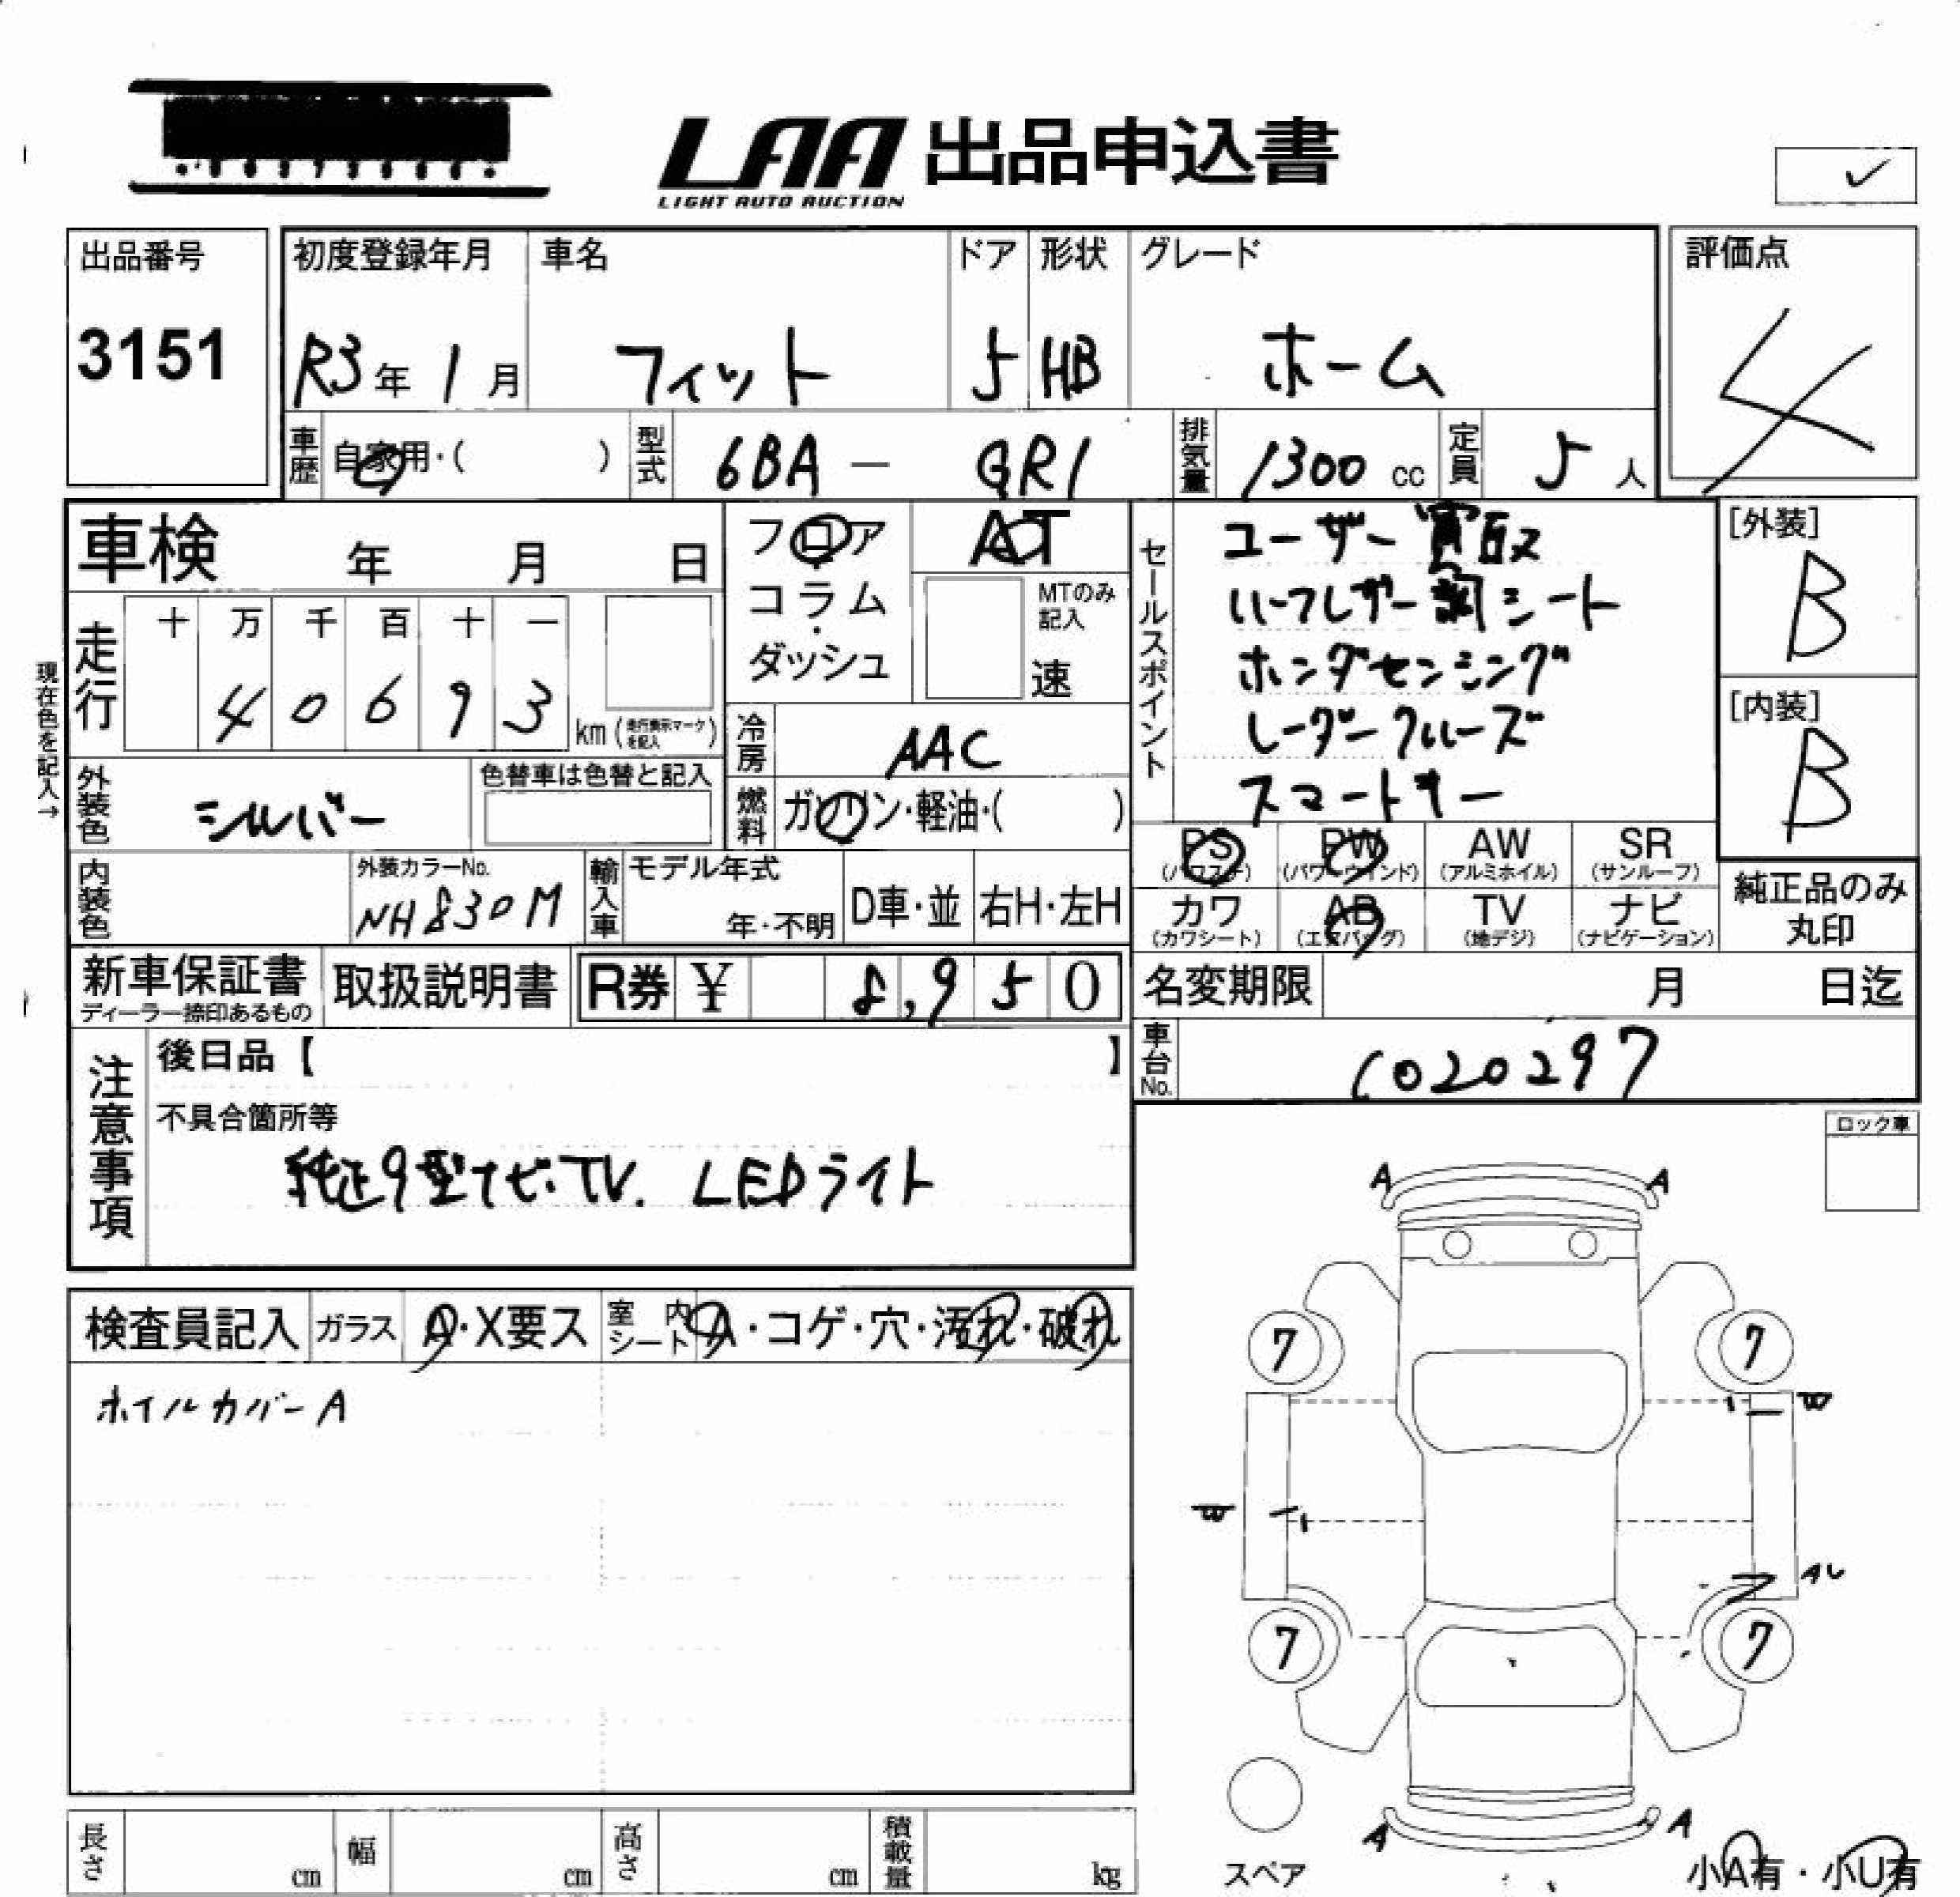 LAA 出品申込書
LIGHT AUTO AUCTION
出品番号
3151
初度登録年月
R3年 1月
車名
フィット
ドア
5
形状
HB
グレード
ホーム
評価点
4
車歴
自家用・( )
型式
6BA - GR1
排気量
1300 cc
定員
5 人
車検 年 月 日
走行
十 万 千 百 十 一
4 0 6 9 3
km(走行表示マークを記入)
現在色を記入→
フロア
コラム・
ダッシュ
AT
MTのみ記入
速
冷房
AAC
燃料
ガソリン・軽油・( )
セールスポイント
ユーザー買取
ハーフレザー調シート
ホンダセンシング
レーダークルーズ
スマートキー
[外装]
B
[内装]
B
外装色
シルバー
色替車は色替と記入
内装色
外装カラーNo.
NH830M
輸入車
モデル年式
年・不明
D車・並
右H・左H
PS
(パワステ)
PW
(パワーウインド)
AW
(アルミホイル)
SR
(サンルーフ)
カワ
(カワシート)
AB
(エアバッグ)
TV
(地デジ)
ナビ
(ナビゲーション)
純正品のみ
丸印
新車保証書
ディーラー捺印あるもの
取扱説明書
R券 ¥ 8,950
名変期限 月 日迄
車台No.
1020297
注意事項
後日品【 】
不具合箇所等
純正9型ナビ.TV. LEDライト
ロック車
検査員記入
ガラス
A・X要ス
室内シート
A・コゲ・穴・汚れ・破れ
ホイルカバーA
A A
7 7
W
W
AU
7 7
A A
スペア
小A有・小U有
長さ cm
幅 cm
高さ cm
積載量 kg